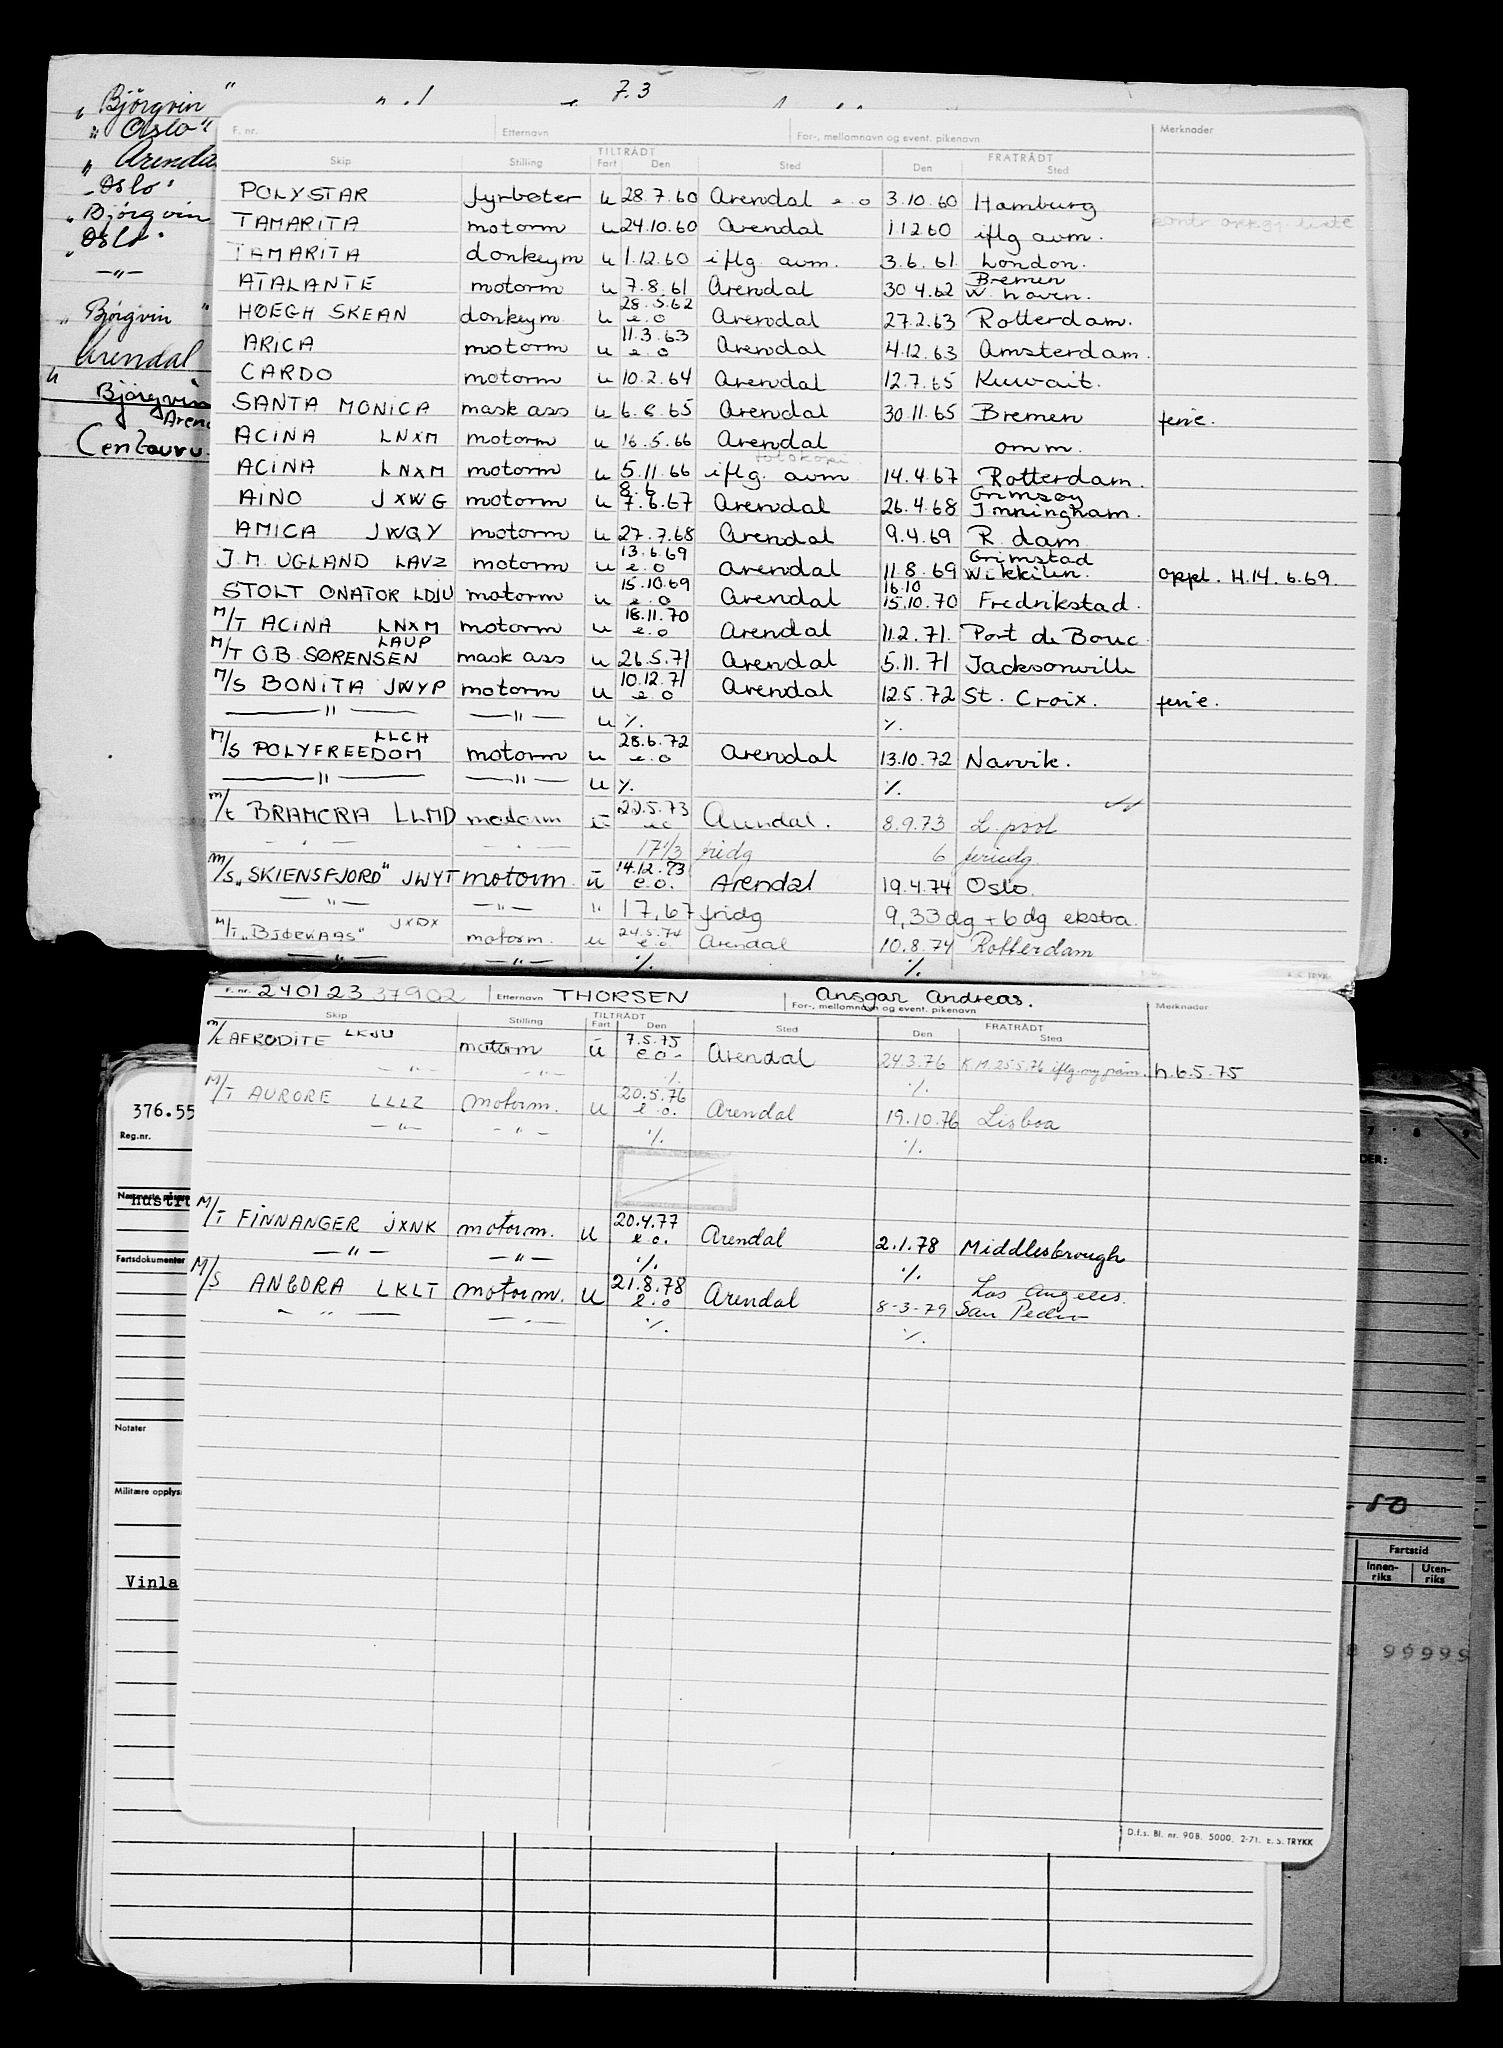 7.3
"Björgvin"
"Oslo"
"Arenda
"Oslo"
"Björgvin
"Oslo"
—"—
"Björgvin"
Arendal
Björgvin
Arend
Centauru
F. nr. Etternavn For-, mellomnavn og event. pikenavn Merknader
TILTRÅDT FRATRÅDT
Skip Stilling Fart Den Sted Den Sted
POLYSTAR fyrbøter u 28.7.60 Arendal e o 3.10.60 Hamburg
TAMARITA motorm u 24.10.60 Arendal 1 12 60 iflg avm.
TAMARITA donkeym u 1.12.60 iflg. avm. 3.6.61 London.
Bremen
ATALANTE motorm u 7.8.61 Arendal 30 4.62 W. haven.
28.5.62
HØEGH SKEAN donkeym u e.o Arendal 27.2.63 Rotterdam.
11.3.63
ARICA motorm u e.o Arendal 4.12.63 Amsterdam.
CARDO motorm u 10.2.64 Arendal 12.7.65 Kuwait.
SANTA MONICA mask ass u 6.8.65 Arendal 30.11.65 Bremen ferie.
ACINA LNXM motorm u 16.5.66 Arendal omm.
fotokopi
ACINA LNXM motorm u 5.11.66 iflg. avm 14.4.67 Rotterdam.
8.6 Grimsøy
AINO JXWG motorm u 7.6.67 Arendal 26.4.68 Immingham.
AMICA JWQY motorm u 27.7.68 Arendal 9.4.69 R. dam
13.6.69 Grimstad
J.M. UGLAND LAVZ motorm u e.o Arendal 11.8.69 Wikkilen. oppl. H.14.6.69.
15.10.69 16.10
STOLT ONATOR LDJU motorm u e.o Arendal 15.10.70 Fredrikstad.
18.11.70
M/T ACINA LNXM motorm u e.o Arendal 11.2.71. Port de Bouc.
LAUP
M/T O.B. SØRENSEN mask ass u 26.5.71 Arendal 5.11.71 Jacksonville
10.12.71
M/S BONITA JWYP motorm u e.o Arendal 12.5.72 St. Croix. ferie.
—"— —"— u ٪. ٪.
LLCH 28.6.72
M/S POLYFREEDOM motorm u e.o Arendal 13.10.72 Narvik.
—"— —"— u ٪. ٪.
22.5.73
M/t BRAMORA LLMD motorm u eo Arendal. 8.9.73 L. pool
—"— —"— 17 1/3 fridg 6 feriedg.
14.12.73
M/S "SKIENSFJORD" JWYT motorm u e.o. Arendal 19.4.74 Oslo.
—"— —"— " 17,67 fridg 9,33 dg + 6 dg ekstra.
JXDX 24.5.74
M/T. "BJØRKAAS" motorm. u e.o. Arendal 10.8.74 Rotterdam
—"— —"— ٪. ٪.
F. nr. 240123 37902 Etternavn THORSEN Ansgar Andreas.
For-, mellomnavn og event. pikenavn Merknader
TILTRÅDT FRATRÅDT
Skip Stilling Fart Den Sted Den Sted
LKJU 7.5.75
M/t AFRODITE motorm u e o - Arendal 24.3.76 K M. 25.5.76 iflg. h.6.5.75
—"— —"— ٪. ٪.
20.5.76
M/T AURORE LLLZ motorm. u e.o. Arendal 19.10.76 Lisboa
—"— —"— ٪. ٪.
20.4.77
M/T FINNANGER JXNK motorm. u e.o. Arendal 2.1.78 Middlesbrough
—"— —"— ٪. ٪.
21.8.78 Los Angeles.
M/S ANGORA LKLT motorm. u e.o Arendal 8-3-79 San Pedro
—"— —"— ٪. ٪.
D.f.s. Bl. nr. 908. 5000. 2-71. E. S. TRYKK
376.55
Reg.nr.
Hustru
Fartsdokumenter
Notater
Militære opplys
Vinla
7 8 9
DER:
50
Fartstid
Innen-riks Uten-riks
8 99999